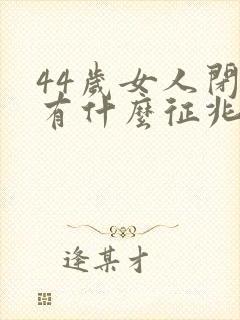 44歲女人閉
有什麼征兆
逢某才